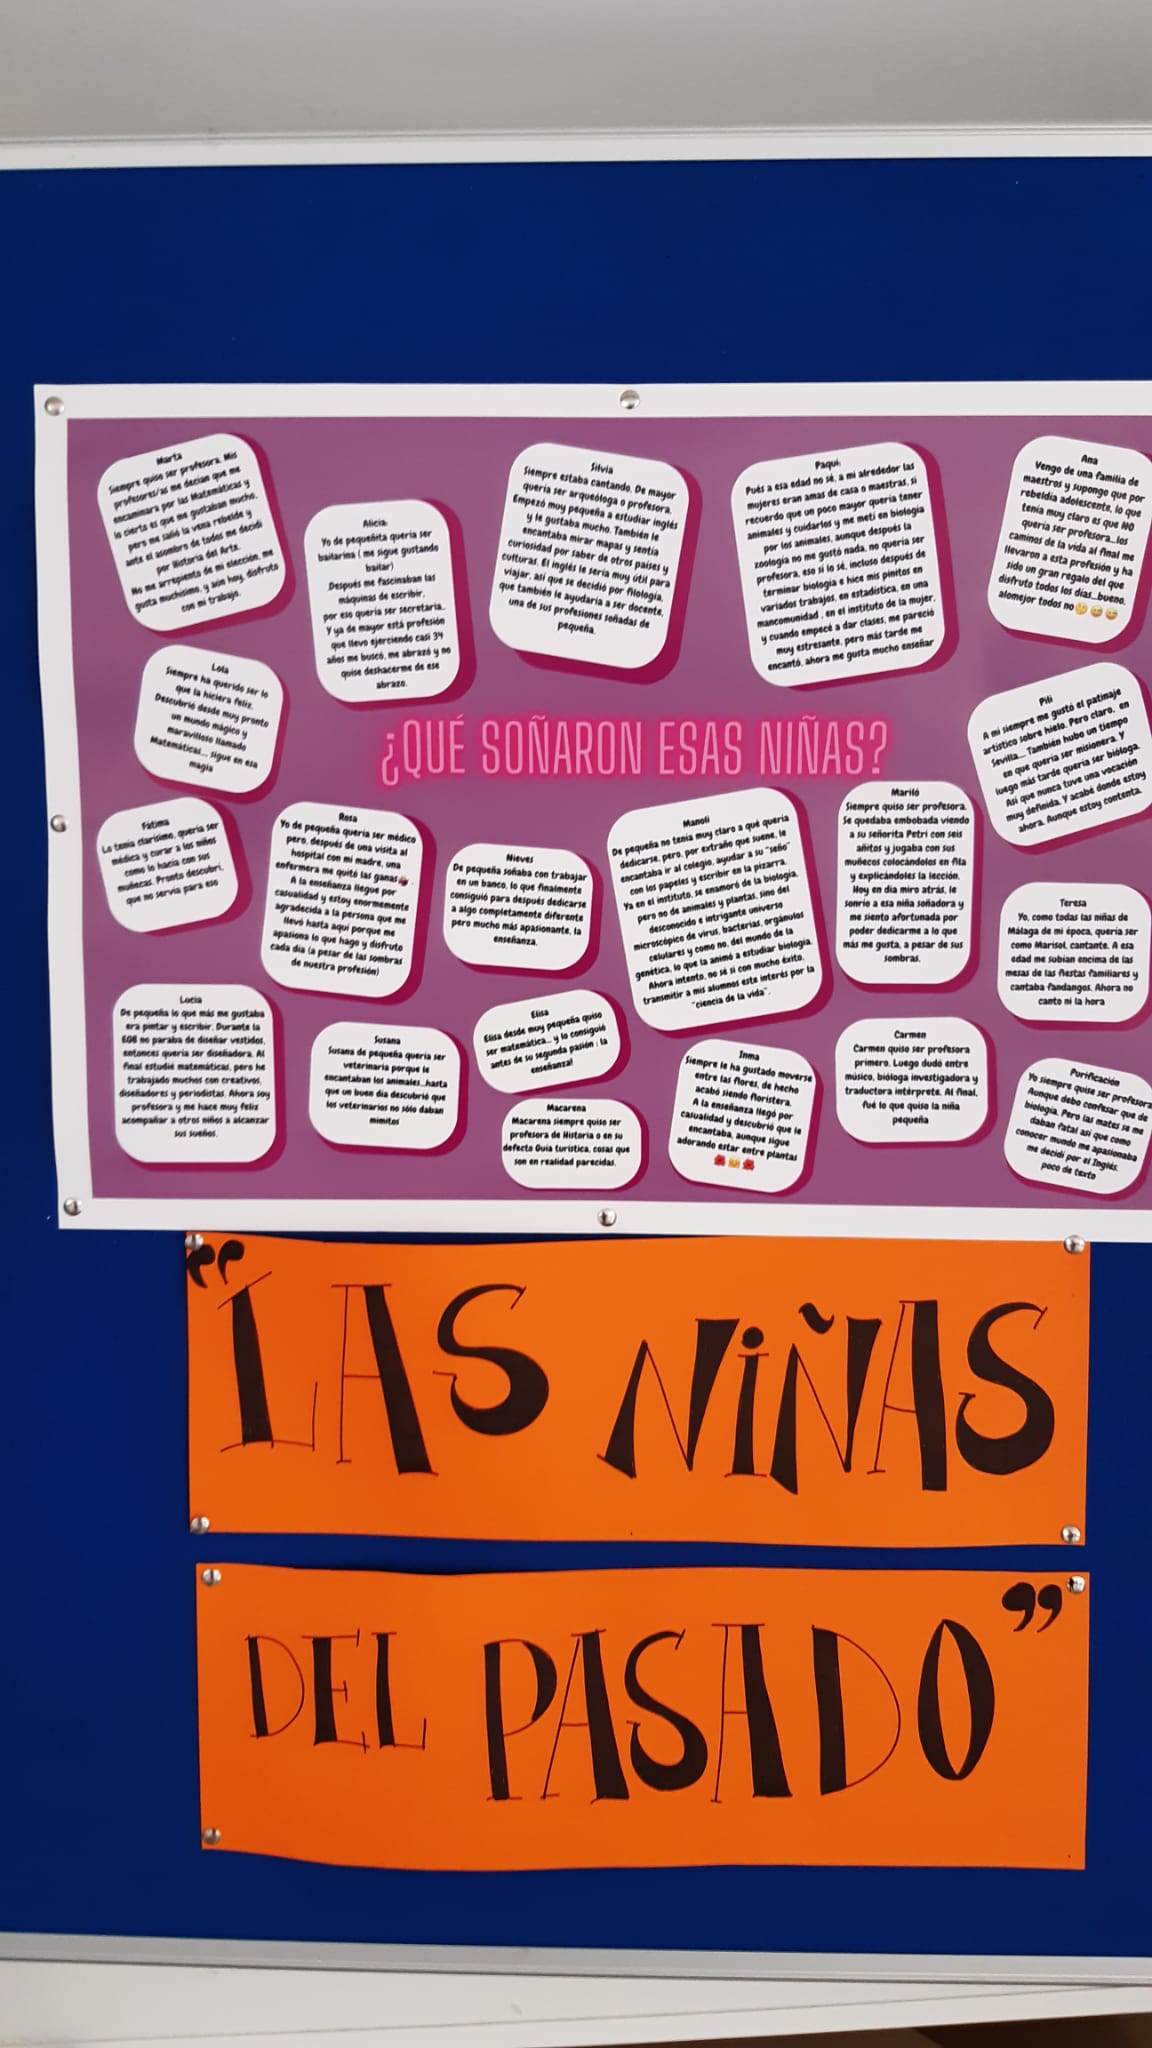 Marta
Siempre quiso ser profesora. Mis
profesores/as me decían que me
encaminara por las Matemáticas y
lo cierto es que me gustaban mucho,
pero me salió la vena rebelde y
ante el asombro de todos me decidí
por Historia del Arte.
No me arrepiento de mi elección, me
gusta muchísimo, y aún hoy, disfruto
con mi trabajo.
Alicia
Yo de pequeñita quería ser
bailarina ( me sigue gustando
bailar)
Después me fascinaban las
máquinas de escribir,
por eso quería ser secretaria.
Y ya de mayor está profesión
que llevo ejerciendo casi 34
años me buscó, me abrazó y no
quise deshacerme de ese
abrazo.
Silvia
Siempre estaba cantando. De mayor
quería ser arqueóloga o profesora.
Empezó muy pequeña a estudiar inglés
y le gustaba mucho. También le
encantaba mirar mapas y sentía
curiosidad por saber de otros países y
culturas. El inglés le sería muy útil para
viajar, así que se decidió por filología,
que también le ayudaría a ser docente,
una de sus profesiones soñadas de
pequeña.
Paqui:
Pués a esa edad no sé, a mi alrededor las
mujeres eran amas de casa o maestras, si
recuerdo que un poco mayor quería tener
animales y cuidarlos y me metí en biología
por los animales, aunque después la
zoología no me gustó nada, no quería ser
profesora, eso sí lo sé, incluso después de
terminar biología e hice mis pinitos en
variados trabajos, en estadística, en una
mancomunidad , en el instituto de la mujer,
y cuando empecé a dar clases, me pareció
muy estresante, pero más tarde me
encantó, ahora me gusta mucho enseñar
Ana
Vengo de una familia de
maestros y supongo que por
rebeldía adolescente, lo que
tenía muy claro es que NO
quería ser profesora...los
caminos de la vida al final me
llevaron a esta profesión y ha
sido un gran regalo del que
disfruto todos los días...bueno,
alomejor todos no🤔😅😅
Lola
Siempre ha querido ser lo
que la hiciera feliz.
Descubrió desde muy pronto
un mundo mágico y
maravilloso llamado
Matemáticas... sigue en esa
magia
¿QUÉ SOÑARON ESAS NIÑAS?
Pili
A mi siempre me gustó el patinaje
artístico sobre hielo. Pero claro, en
Sevilla... También hubo un tiempo
en que quería ser misionera. Y
luego más tarde quería ser bióloga.
Así que nunca tuve una vocación
muy definida. Y acabé donde estoy
ahora. Aunque estoy contenta.
Fátima
Lo tenía clarísimo, quería ser
médica y curar a los niños
como lo hacía con sus
muñecas. Pronto descubrí,
que no servía para eso
Rosa
Yo de pequeña quería ser médico
pero, después de una visita al
hospital con mi madre, una
enfermera me quitó las ganas .
A la enseñanza llegue por
casualidad y estoy enormemente
agradecida a la persona que me
llevó hasta aquí porque me
apasiona lo que hago y disfruto
cada día (a pesar de las sombras
de nuestra profesión)
Nieves
De pequeña soñaba con trabajar
en un banco, lo que finalmente
consiguió para después dedicarse
a algo completamente diferente
pero mucho más apasionante, la
enseñanza.
Manoli
De pequeña no tenía muy claro a qué quería
dedicarse, pero, por extraño que suene, le
encantaba ir al colegio, ayudar a su "seño"
con los papeles y escribir en la pizarra.
Ya en el instituto, se enamoró de la biología,
pero no de animales y plantas, sino del
desconocido e intrigante universo
microscópico de virus, bacterias, orgánulos
celulares y como no, del mundo de la
genética, lo que la animó a estudiar biología.
Ahora intento, no sé si con mucho éxito,
transmitir a mis alumnos este interés por la
"ciencia de la vida".
Mariló
Siempre quiso ser profesora.
Se quedaba embobada viendo
a su señorita Petri con seis
añitos y jugaba con sus
muñecos colocándolos en fila
y explicándoles la lección.
Hoy en día miro atrás, le
sonrío a esa niña soñadora y
me siento afortunada por
poder dedicarme a lo que
más me gusta, a pesar de sus
sombras.
Teresa
Yo, como todas las niñas de
Málaga de mi época, quería ser
como Marisol, cantante. A esa
edad me subían encima de las
mesas de las fiestas familiares y
cantaba fandangos. Ahora no
canto ni la hora
Lucía
De pequeña lo que más me gustaba
era pintar y escribir. Durante la
EGB no paraba de diseñar vestidos,
entonces quería ser diseñadora. Al
final estudié matemáticas, pero he
trabajado muchos con creativos,
diseñadores y periodistas. Ahora soy
profesora y me hace muy feliz
acompañar a otros niños a alcanzar
sus sueños.
Susana
Susana de pequeña quería ser
veterinaria porque le
encantaban los animales...hasta
que un buen día descubrió que
los veterinarios no sólo daban
mimitos
Elisa
Elisa desde muy pequeña quiso
ser matemática... y lo consiguió
antes de su segunda pasión : la
enseñanza!
Macarena
Macarena siempre quiso ser
profesora de Historia o en su
defecto Guía turística, cosas que
son en realidad parecidas.
Inma
Siempre le ha gustado moverse
entre las flores, de hecho
acabó siendo florístera.
A la enseñanza llegó por
casualidad y descubrió que le
encantaba, aunque sigue
adorando estar entre plantas
Carmen
Carmen quiso ser profesora
primero. Luego dudó entre
músico, bióloga investigadora y
traductora intérprete. Al final,
fué lo que quiso la niña
pequeña
Purificación
Yo siempre quise ser profesora
Aunque debo confesar que de
biología. Pero las mates se me
daban fatal así que como
conocer mundo me apasionaba
me decidí por el Inglés.
poco de texto
"LAS NIÑAS
DEL PASADO"